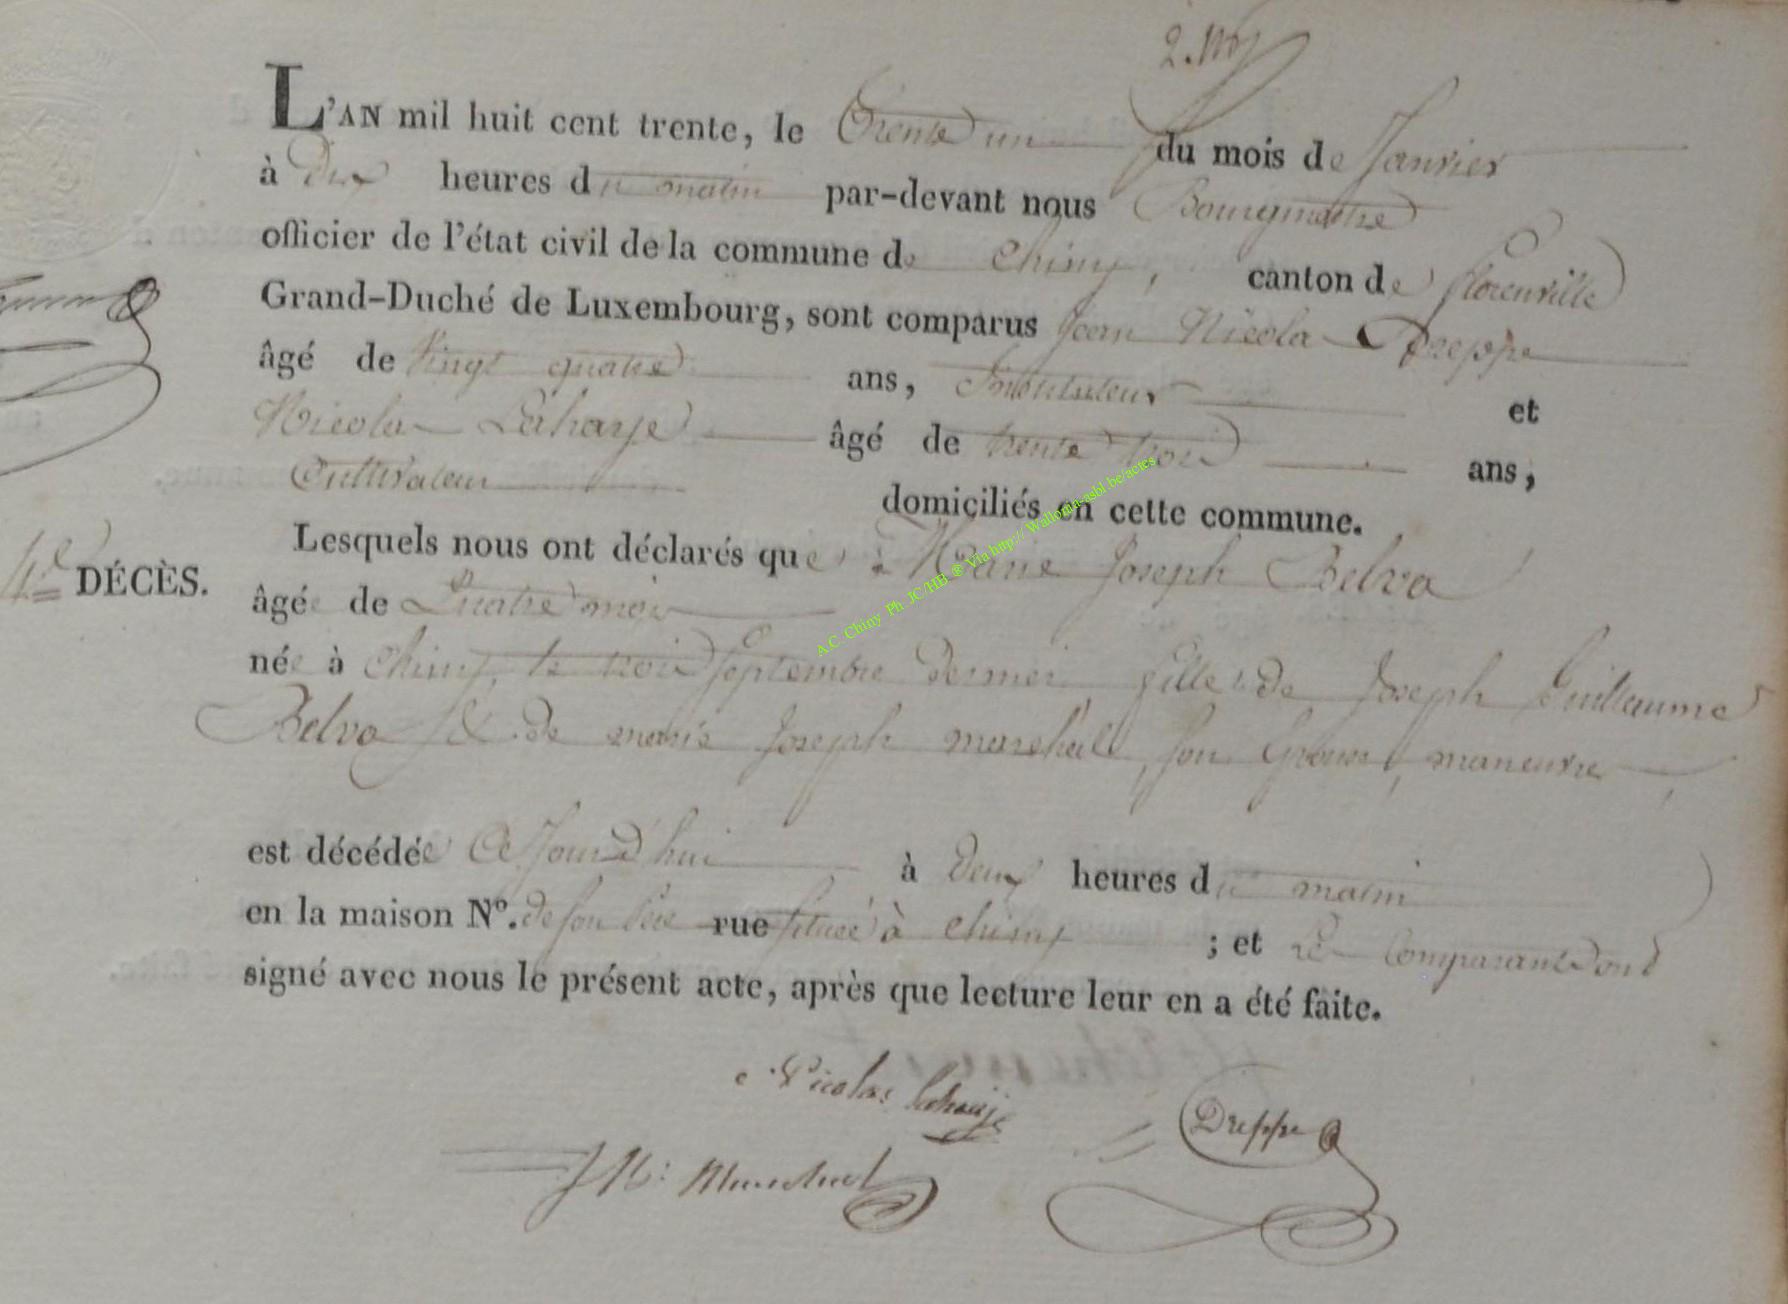 L'AN mil huit cent trente, le trente un du mois de Janvier
à dix heures du matin par-devant nous Bourgmestre
officier de l'état civil de la commune de Chiny, canton de florenville
Grand-Duché de Luxembourg, sont comparus Jean Nicolas Dreppe
âgé de vingt quatre ans, Instituteur et
Nicolas Laharje âgé de trente trois ans,
Cultivateur domiciliés en cette commune.
Lesquels nous ont déclarés que Marie Joseph Belva
4e DÉCÈS.
âgée de Quatre mois
née à Chiny, le trois septembre dernier fille de Joseph Guillaume
Belva & de marie Joseph mareshall, son Epouse, maneuvre,
est décédée Ce Jourd'hui à deux heures du matin
en la maison N°. de son Père rue située à Chiny ; et Les Comparants ont
signé avec nous le présent acte, après que lecture leur en a été faite.
Nicolas laharje
Dreppe
A C Chiny Ph JC/HB ® Via http:// Wallonia-asbl.be/actes